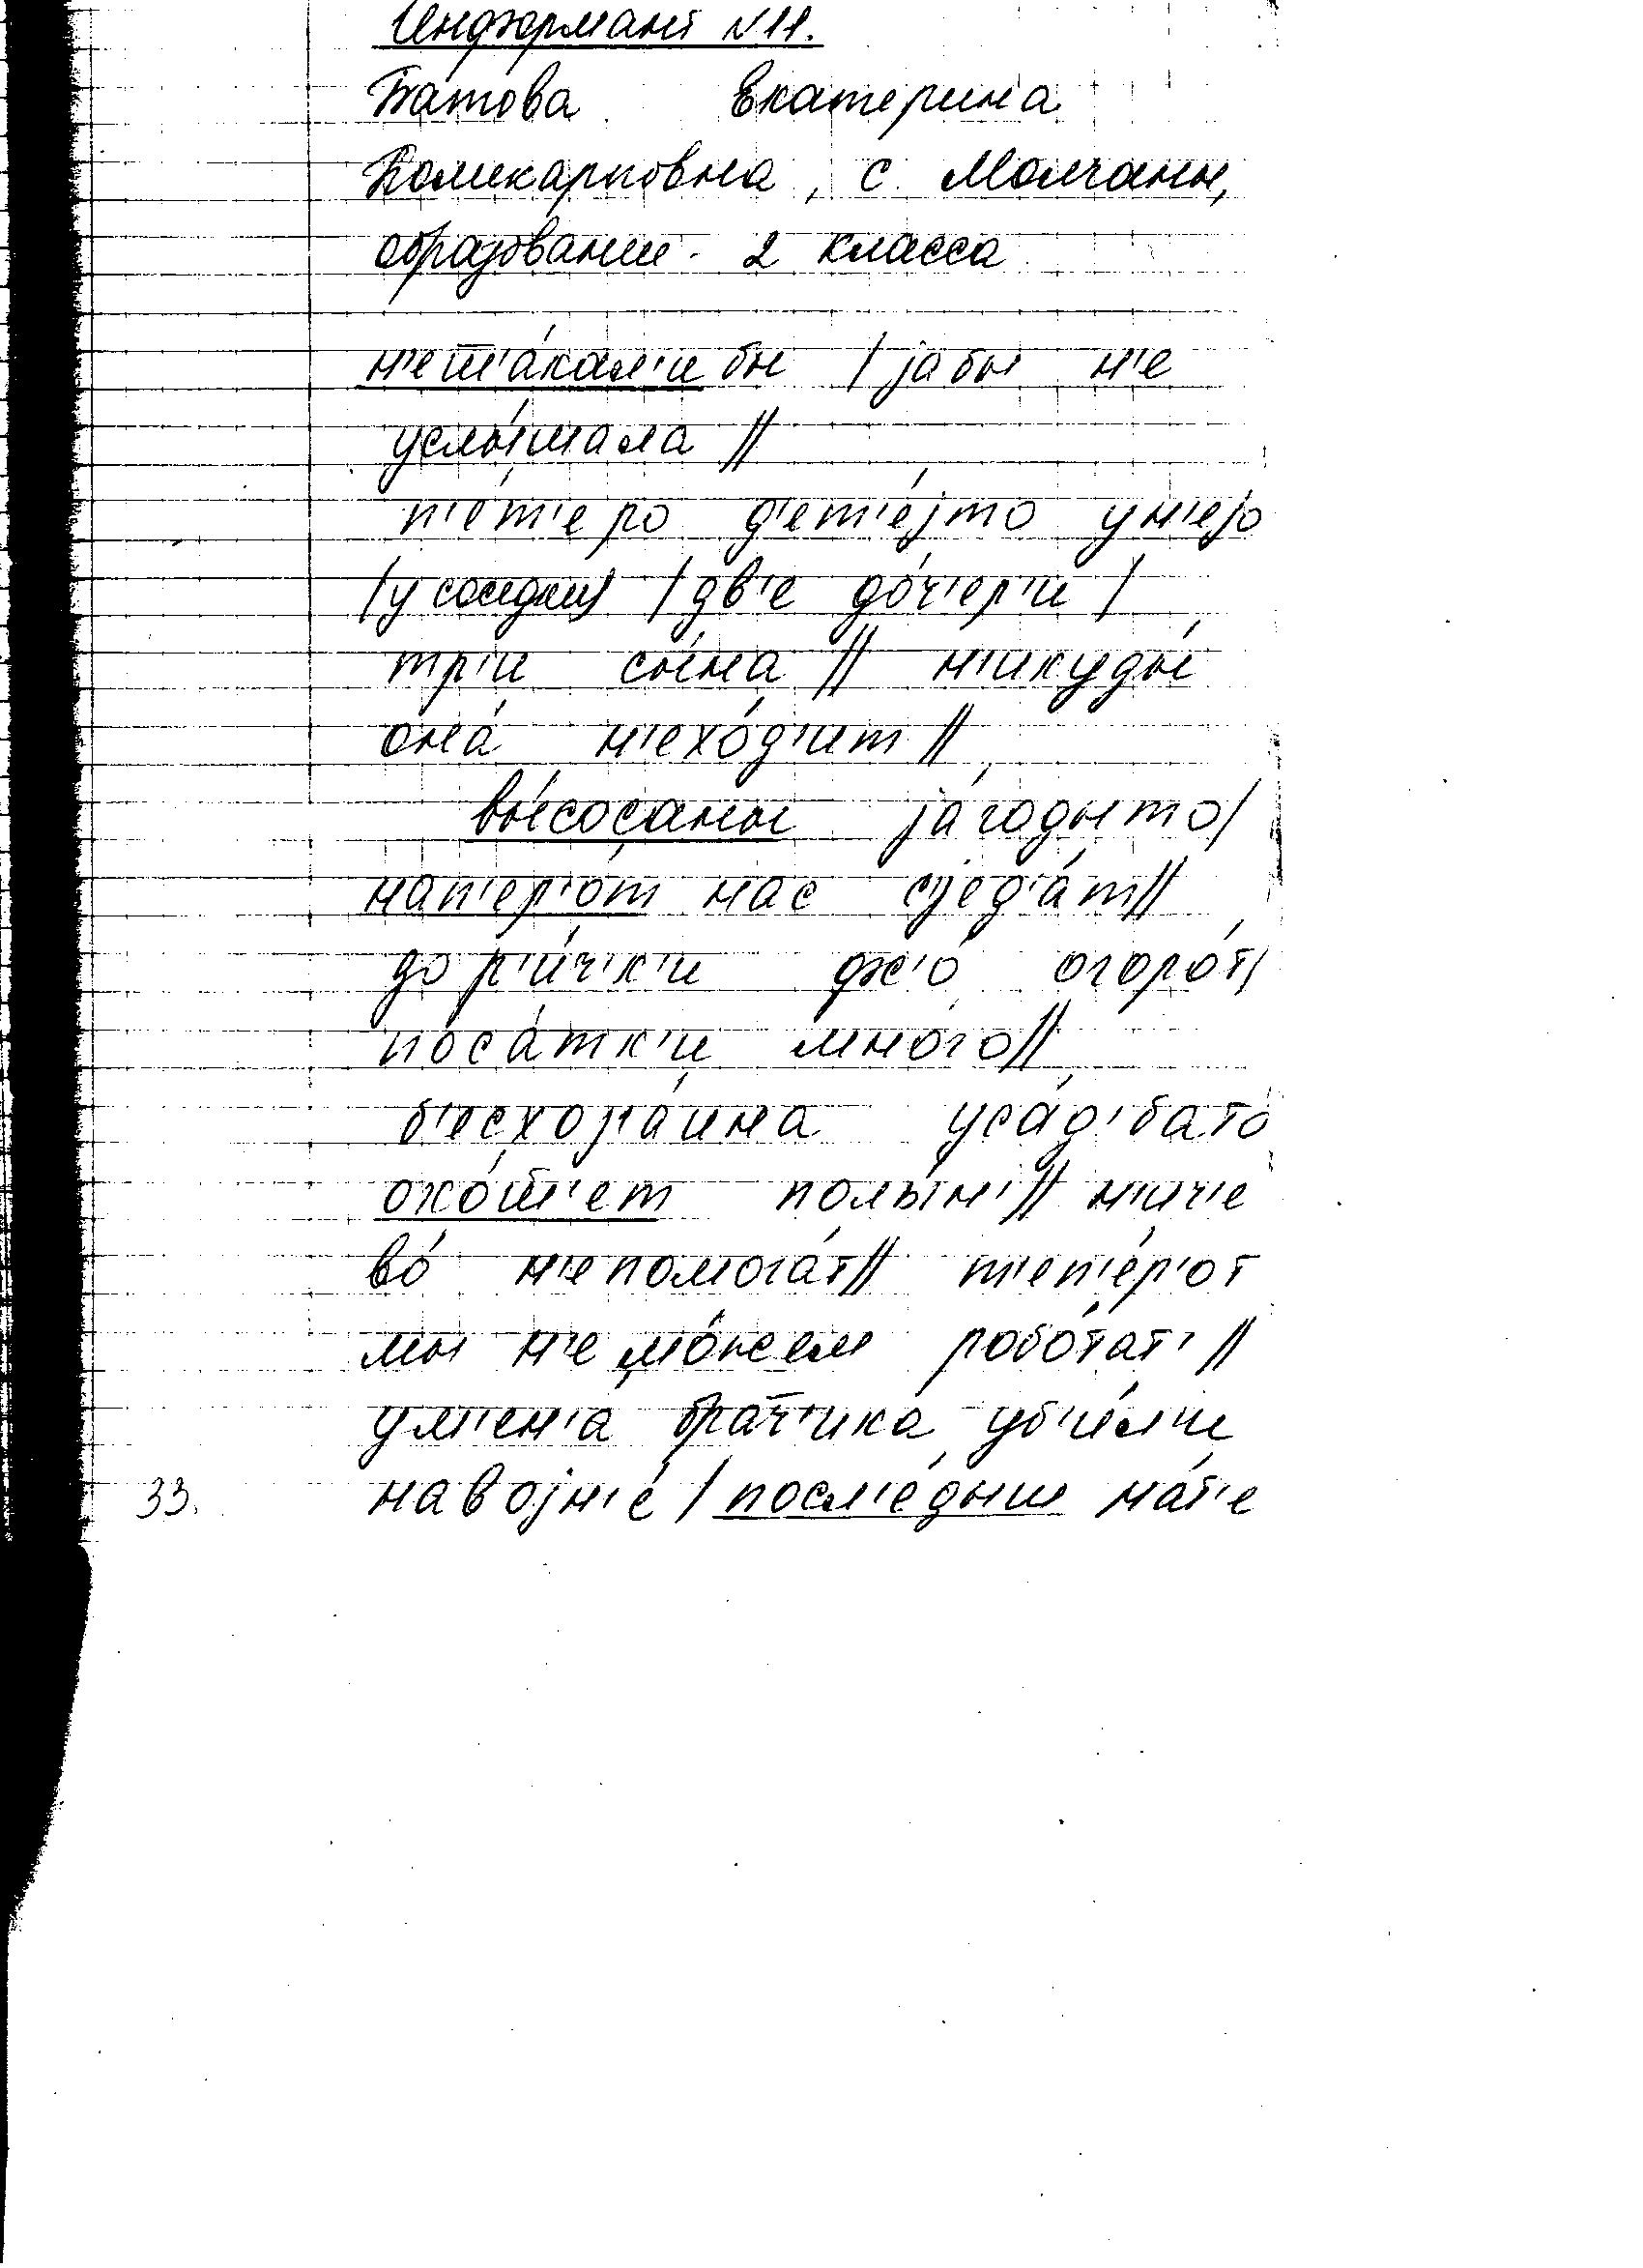 Информант №11.
Батова Екатерина
Поликарповна, с. Молчаны,
образование - 2 класса
н'ет'а́кал'и бы / jабы н'е
услы́шала //
п'е́т'еро д'ет'е́jто ун'еjо́
/у соседки/ / дв'е до́ч'ер'и /
тр'и сы́на // н'икуды́
она́ н'ехо́д'ит //
вы́сосаны jа́годыто /
нап'ер'о́т нас сjед'а́т //
до р'и́ч'к'и ф'с'о́ огоро́т /
поса́тк'и мно́го //
б'есхоз'а́ина уса́д'бато
охо́т'ет полы́н' // н'ич'е
во́ н'епомога́т // т'еп'е́р'от
мы н'емо́жем робо́тат' //
ум'ен'а́ бра́т'ика уб'и́л'и
на воjн'е́ / посл'е́дыш ма́т'е
33.